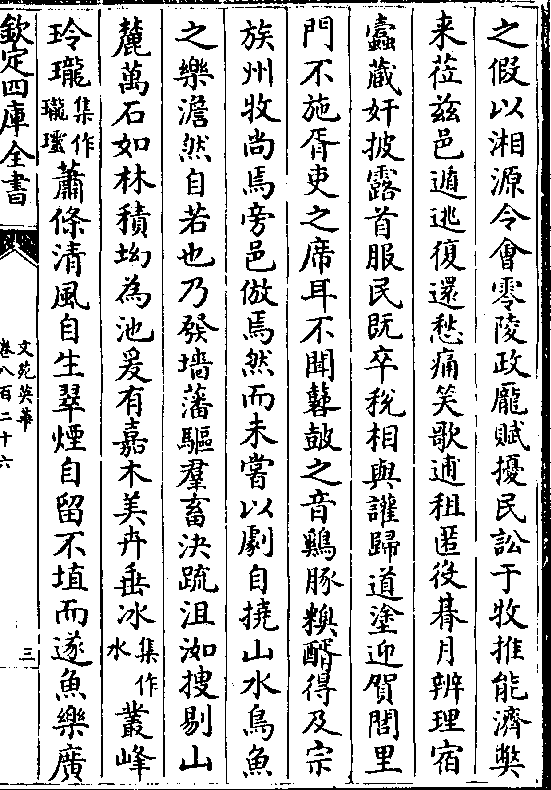 之假以湘源令會零陵政厖賦擾民訟于牧推能濟弊
来莅兹邑遁逃復還愁痛笑歌逋租匿役朞月辨理宿
蠧藏奸披露首服民既卒税相與讙歸道塗迎賀閭里
門不施胥吏之席耳不聞鼛鼓之音鷄豚糗醑得及宗
族州牧尚焉旁邑倣焉然而未嘗以劇自撓山水鳥魚
之樂澹然自若也乃發墻藩驅羣畜決疏沮洳搜剔山
麓萬石如林積坳為池爰有嘉木美卉垂冰集作水叢峰
玲瓏集作瓏瓓蕭條清風自生翠煙自留不埴而遂魚樂廣
欽定四庫全書
文苑英華
卷八百二十六
三